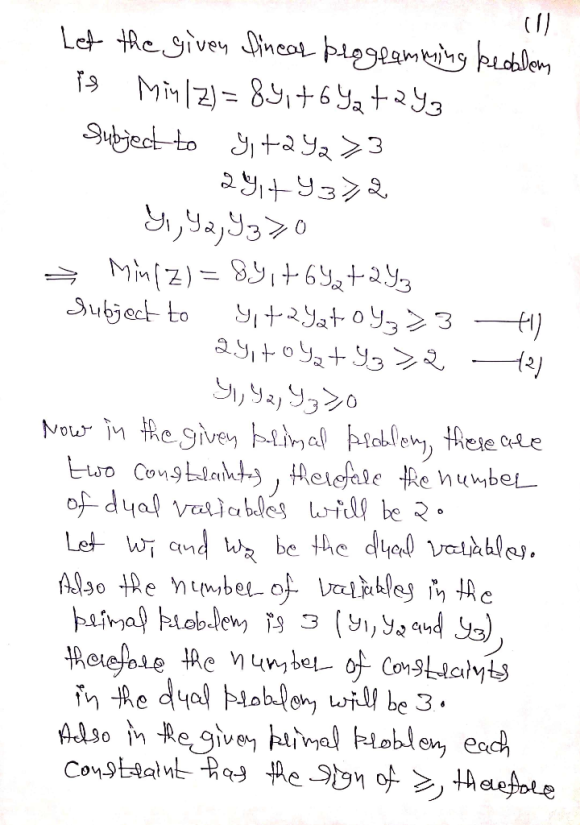 (1)
Let the given linear programming problem
is Min(Z) = 8y₁+6y₂+2y₃
Subject to y₁+2y₂ ≥ 3
2y₁+y₃ ≥ 2
y₁,y₂,y₃ ≥ 0
⇒ Min(Z) = 8y₁+6y₂+2y₃
Subject to y₁+2y₂+0y₃ ≥ 3 —(1)
2y₁+0y₂+y₃ ≥ 2 —(2)
y₁, y₂, y₃ ≥ 0
Now in the given primal problem, there are
two constraints, therefore the number
of dual variables will be 2.
Let w₁ and w₂ be the dual variables.
Also the number of variables in the
primal problem is 3 (y₁, y₂ and y₃),
therefore the number of constraints
in the dual problem will be 3.
Also in the given primal problem each
constraint has the sign of ≥, therefore